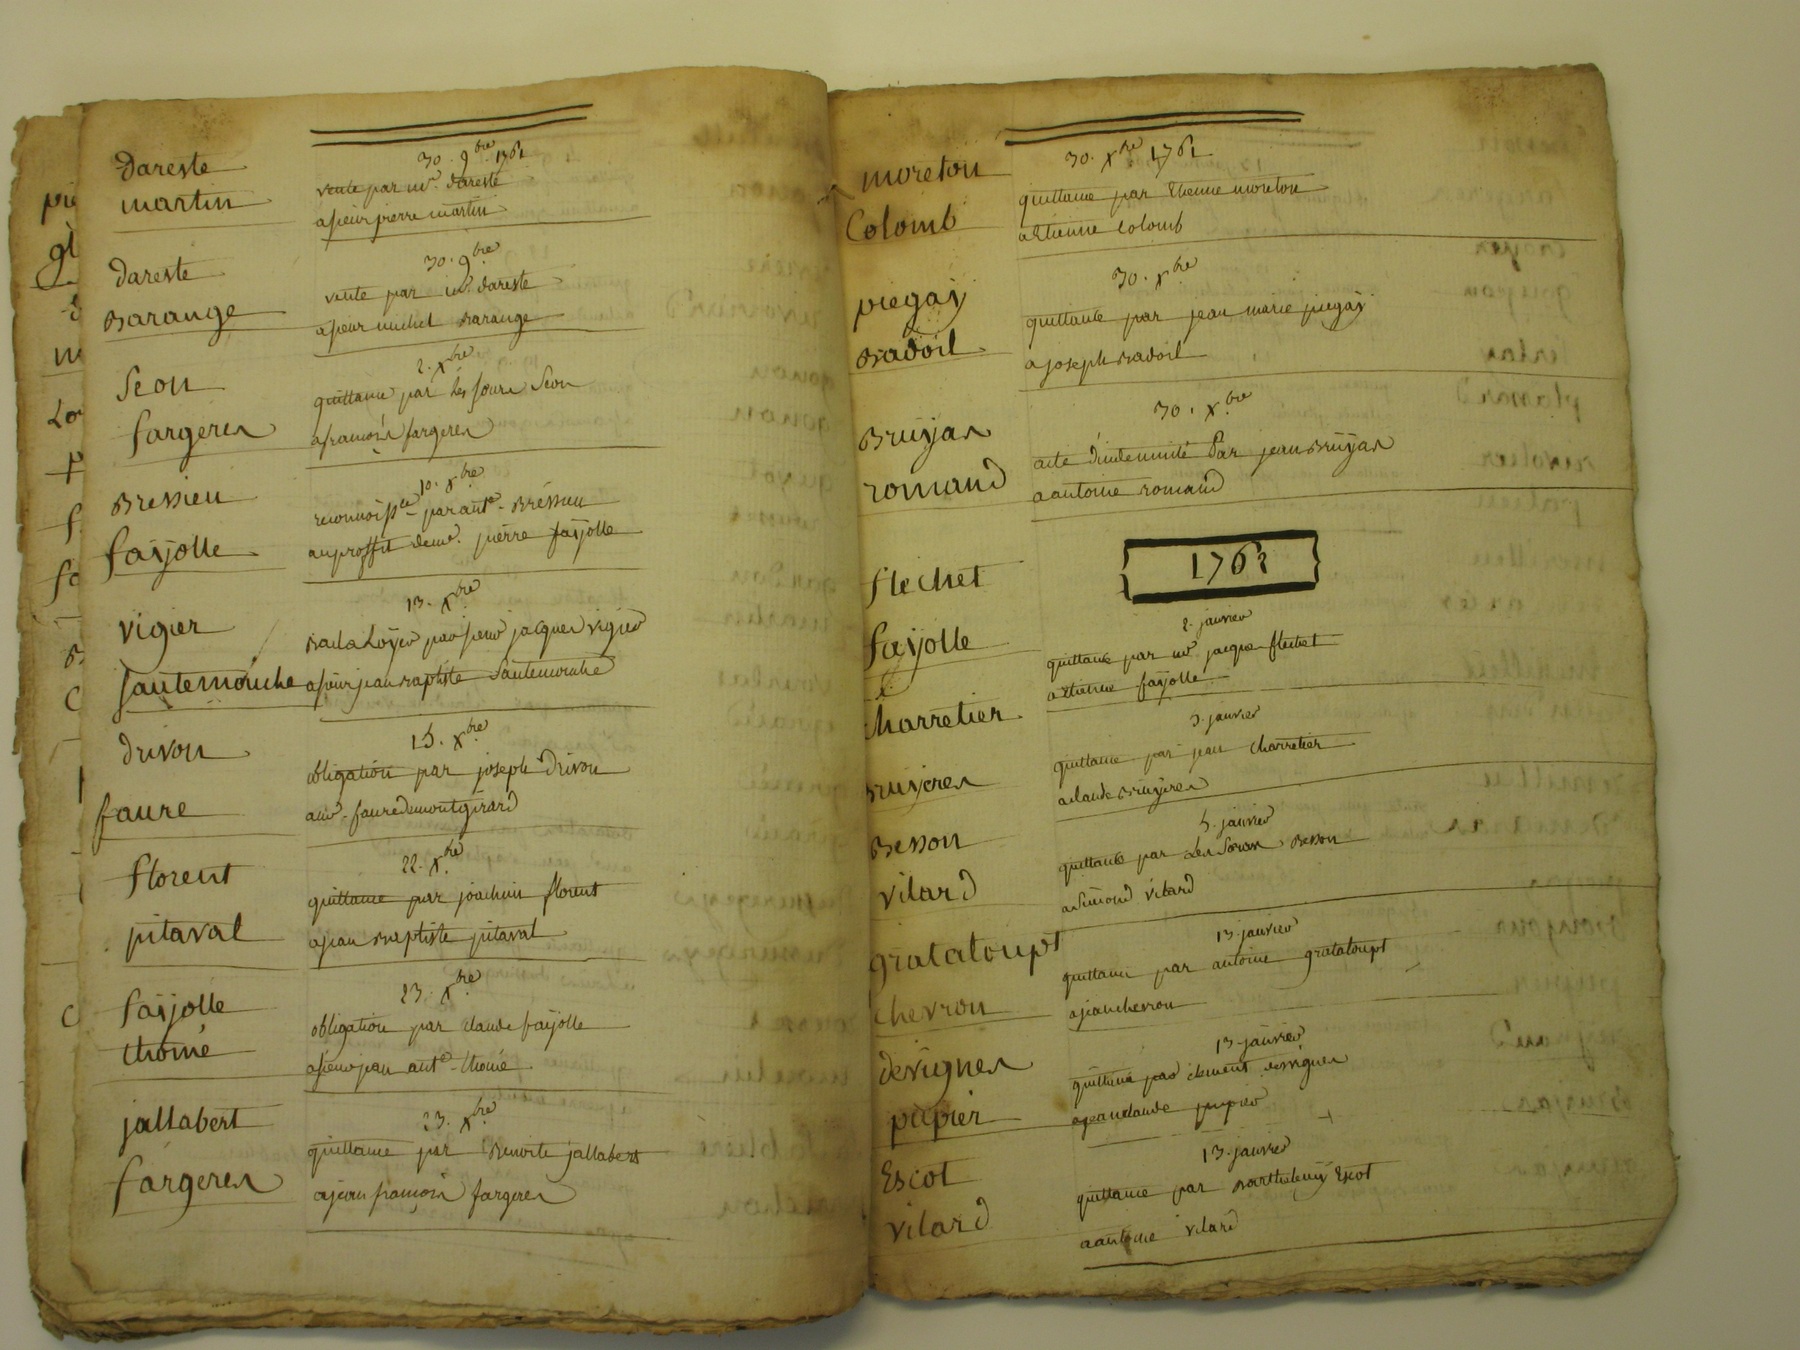 Dareste
martin
30. 9bre 1762
vente par mr. Dareste
a sieur pierre martin
Dareste
Barange
30. 9bre
vente par mr. Dareste
a sieur michel Barange
Seon
fargeres
2. Xbre
quittance par les soeurs Seon
a françois fargeres
Bressieu
faÿolle
10. Xbre
reconnoisce par ante. Bressieu
au proffit de me. pierre faÿolle
Vigier
Sautemouche
13. Xbre
Bail a Loÿer par sieur jacques Vigier
a sieur jean Baptiste Sautemouche
Drivon
faure
15. Xbre
obligation par joseph Drivon
a mr. faure de montgirard
florent
pitaval
22. Xbre
quittance par joachim florent
a jean Baptiste pitaval
faÿolle
thomé
23. Xbre
obligation par claude faÿolle
a sieur jean ante. thomé
jallabert
fargeres
23. Xbre
quittance par Benoite jallabert
a jean françois fargeres
moreton
Colomb
30. Xbre 1762
quittance par Etienne moreton
a Etienne Colomb
piegaÿ
Badoil
30. Xbre
quittance par jean marie piegaÿ
a joseph Badoil
Bruÿas
romand
30. Xbre
acte d'indemnité Par jean Bruÿas
a antoine romand
1763
flechet
faÿolle
2. janvier
quittance par mr. jacque flechet
a Etienne faÿolle
Charretier
Bruÿeres
3. janvier
quittance par jean Charretier
a claude Bruÿeres
Besson
Vilard
5. janvier
quittance par Les Soeurs Besson
a Simond Vilard
grataloupt
Chevron
13. janvier
quittance par antoine grataloupt
a jean chevron
devignes
pupier
13. janvier
quittance par clement devignes
a jean claude pupier
Escot
Vilard
13. janvier
quittance par Barthelemÿ Escot
a antoine Vilard